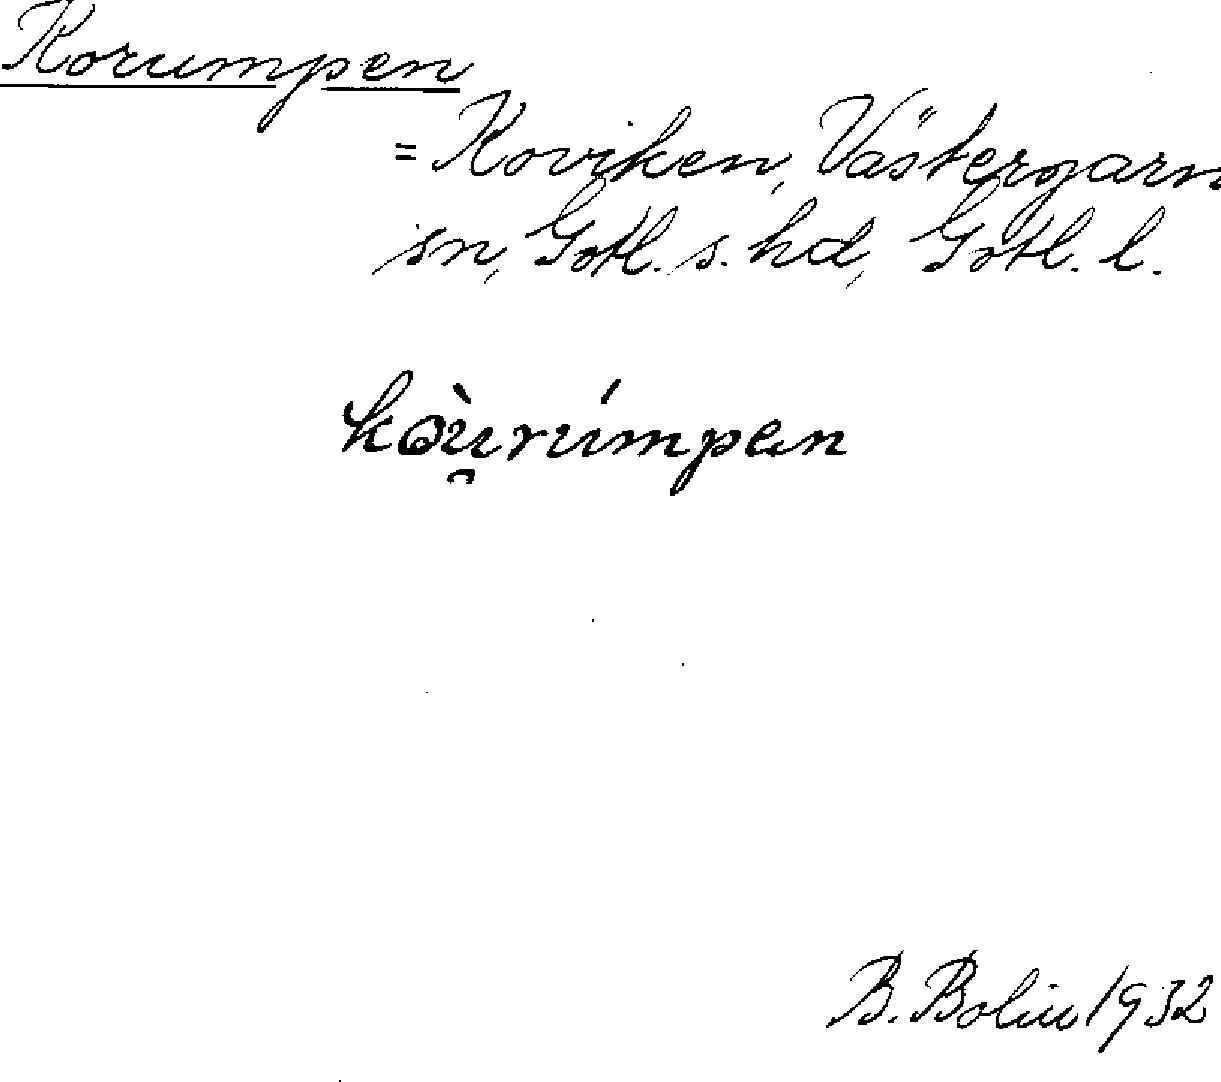 Korumpen
= Koviken, Västergarn
sn, Gotl. s. hd, Gotl. l.
kəù̯rúmpən
B. Bolin 1932